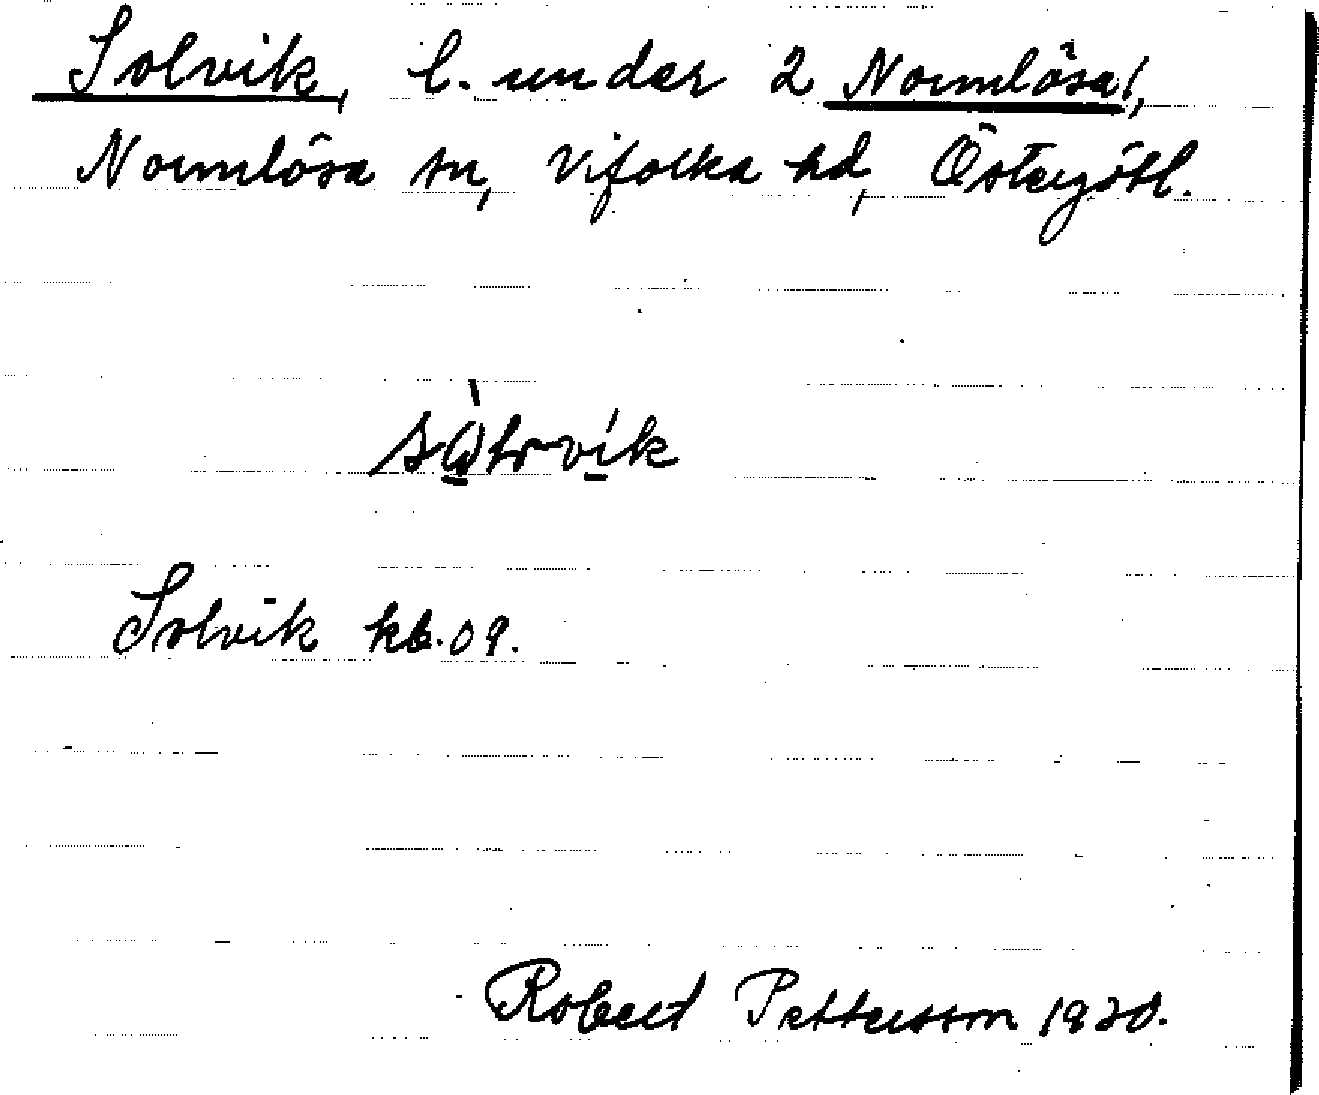 Solvik, l. under 2 Normlösa!,
Normlösa sn, Vifolka hd, Östergötl.
Solvik kb. 09.
Robert Pettersson 1930.